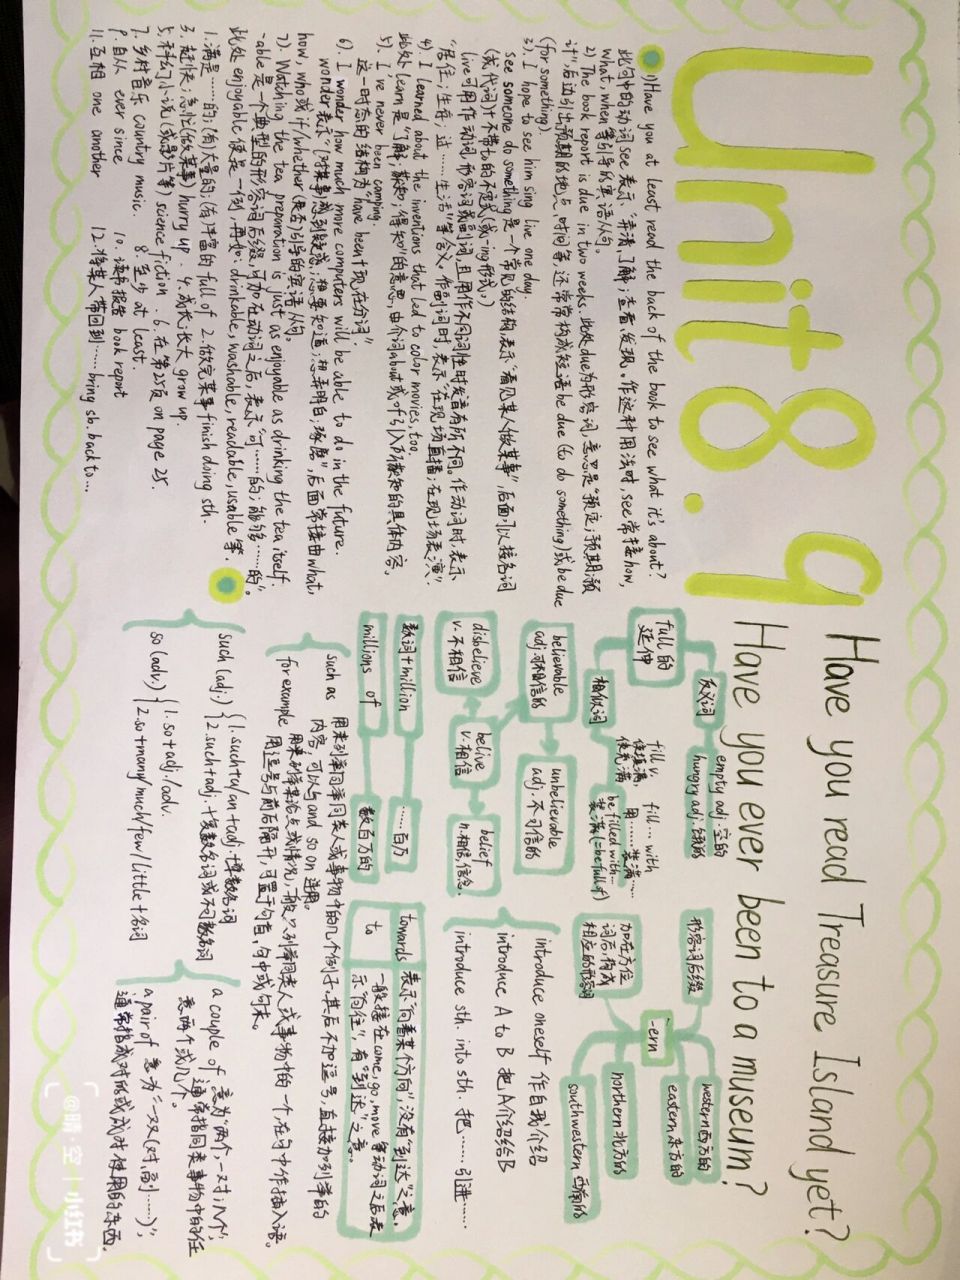 Unit8.9
Have you read Treasure Island yet?
Have you ever been to a museum?
1) Have you at least read the back of the book to see what it's about?
此句中的动词see表示"弄清,了解;查看,发现。作这种用法时,see常接how,
what,when等引导的宾语从句。
2) The book report is due in two weeks. 此处due为形容词,意思是"预定;预期;预
计",后边引出预期的地点,时间等,还常常构成短语be due (to do something)或be due
(for something).
3). I hope to see him sing live one day.
see someone do something是一个常见的结构,表示"看见某人做某事",后面可以接名词
(或代词)+不带to的不定式(或-ing形式。)
live可用作动词,形容词或副词,且用作不同词性时发音有所不同。作动词时,表示
"居住;生存;过……生活"等含义。作副词时,表示"在现场直播;在现场表演"。
4) I learned about the inventions that led to color movies, too.
此处learn是"了解;获知;得知"的意思,由介词about或of引入所获知的具体内容。
5). I've never been camping.
这一时态的结构为"have been+现在分词"
6). I wonder how much more computers will be able to do in the future.
wonder表示"(对某事)感到疑惑;想要知道;想弄明白;琢磨",后面常接由what,
how, who或if/whether(是否)引导的宾语从句。
7) Watching the tea preparation is just as enjoyable as drinking the tea itself.
-able是一个典型的形容词后缀,可加在动词之后,表示"可……的;能够……的"。
此处enjoyable便是一例,再如:drinkable, washable, readable, usable等。
1. 满是……的;(有)大量的;(有)丰富的 full of 2. 做完某事 finish doing sth.
3. 赶快;急忙(做某事) hurry up 4. 成长;长大 grow up.
5. 科幻小说(或影片等) science fiction 6. 在第25页 on page 25.
7. 乡村音乐 country music. 8. 至少 at least.
9. 自从 ever since 10. 读书报告 book report
11. 互相 one another 12. 将某人带回到…… bring sb. back to…
full的
延伸
反义词
empty adj. 空的
hungry adj. 饿的
相似词
fill v.
使填满,
使充满
fill … with
用……装满……
be filled with…
装满(=be full of)
believable
adj.可相信的
unbelievable
adj. 不可信的
disbelieve
v.不相信
belive
v.相信
belief
n.相信,信念.
数词+million
……百万
millions of
数百万的
形容词后缀
加在方位
词后,构成
相应的形容词
-ern
western西方的
eastern东方的
nothern北方的
southwestern西南的
introduce oneself 作自我介绍
introduce A to B 把A介绍给B
introduce sth. into sth. 把……引进……
towards 表示"向着某个方向",没有"到达"之意.
to 一般接在come, go, move等动词之后表
示"向,往",有"到达"之意。
such as 用来列举同类人或事物中的几个例子,其后不加逗号,直接加列举的
内容,可以与and so on 连用。
for example 用来列举论点或情况,一般只列举同类人或事物中的一个,在句中作插入语。
用逗号与前后隔开,可置于句首,句中或句末。
such (adj.) 1. such+a/an+adj.+单数名词
2. such+adj.+复数名词或不可数名词
so (adv.) 1. so+adj./adv.
2. so+many/much/few/little+名词
a couple of 意为"两个;一对;几个",
通常指同类事物中的任
意两个或几个。
a pair of 意为"一双(对,副)……",
通常指成对形成或成对使用的东西.
@晴·空 | 小红书